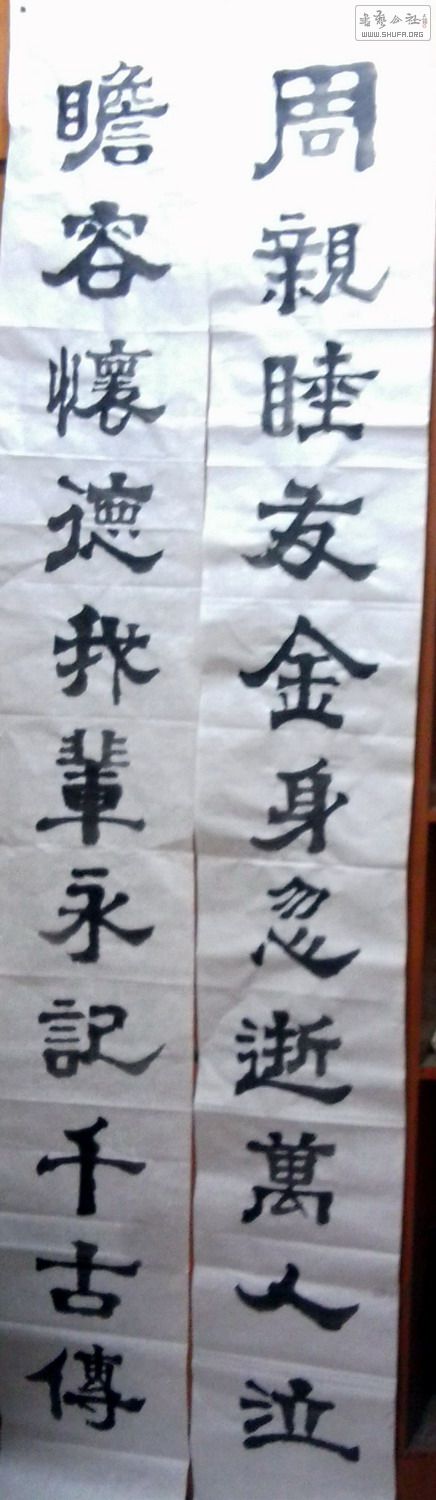 周親睦友金身忽逝萬人泣
瞻容懷德我輩永記千古傳
書藝公社
WWW.SHUFA.ORG